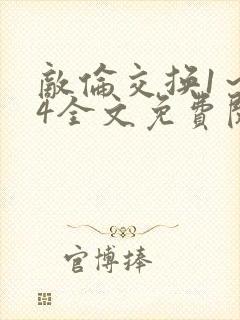 敵倫交换1~
4全文免費閱
官博捧